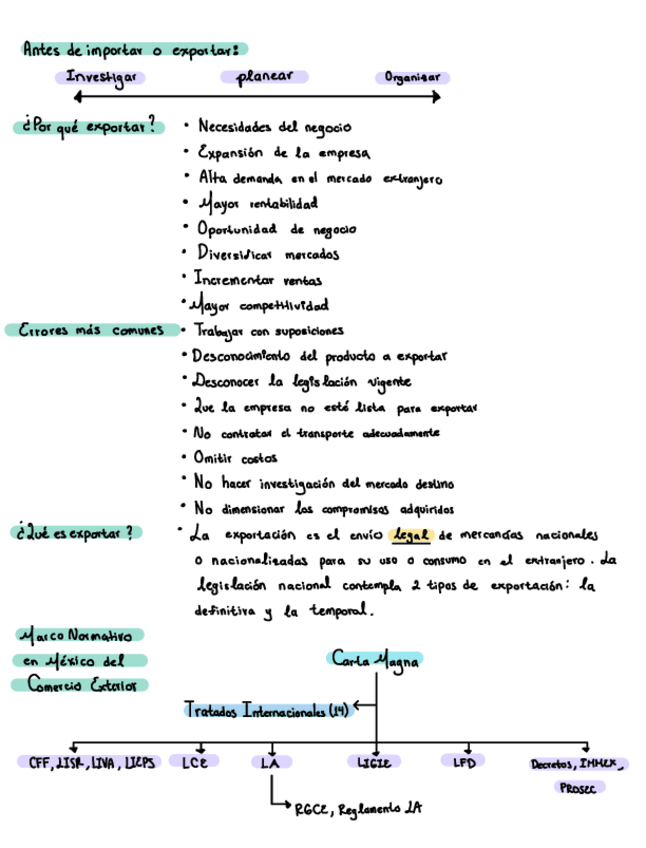 Antes de importar o exportar:
Investigar planear Organizar
¿Por qué exportar? • Necesidades del negocio
• Expansión de la empresa
• Alta demanda en el mercado extranjero
• Mayor rentabilidad
• Oportunidad de negocio
• Diversificar mercados
• Incrementar ventas
• Mayor competitividad
Errores más comunes • Trabajar con suposiciones
• Desconocimiento del producto a exportar
• Desconocer la legislación vigente
• Que la empresa no esté lista para exportar
• No contratar el transporte adecuadamente
• Omitir costos
• No hacer investigación del mercado destino
• No dimensionar los compromisos adquiridos
¿Qué es exportar? • La exportación es el envío legal de mercancías nacionales
o nacionalizadas para su uso o consumo en el extranjero. La
legislación nacional contempla 2 tipos de exportación: la
definitiva y la temporal.
Marco Normativo
en México del
Comercio Exterior
Carta Magna
Tratados Internacionales (14)
CFF, LISR, LIVA, LIEPS LCE LA LIGIE LFD Decretos, IMMEX,
PROSEC
RGCE, Reglamento LA